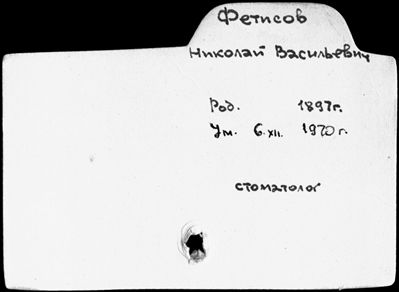 Фетисов
Николай Васильевич
Род. 1897г.
Ум. 6.XII. 1970г.
стоматолог